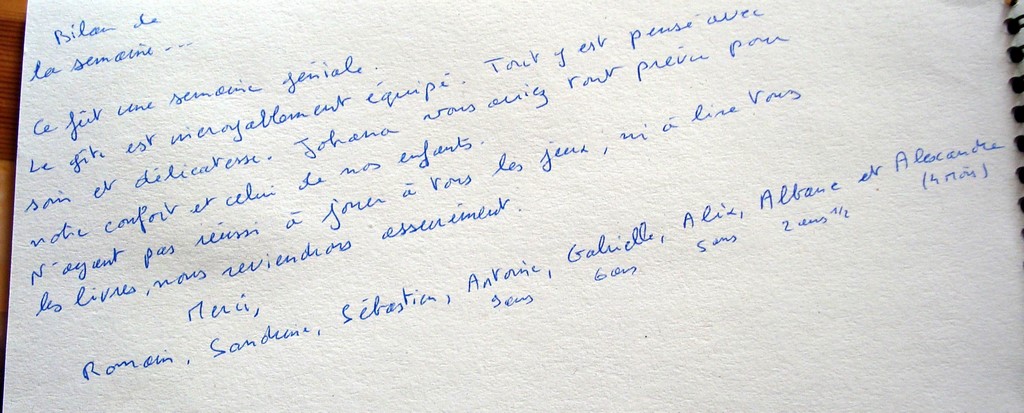 Bilan de
la semaine ...
Ce fût une semaine géniale.
Le gîte est incroyablement équipé. Tout y est pensé avec
soin et délicatesse. Johana vous aviez tout prévu pour
notre confort et celui de nos enfants.
N'ayant pas réussi à jouer à tous les jeux, ni à lire tous
les livres, nous reviendrons assurément.
Merci,
Romain, Sandrine, Sébastien, Antoine, Gabrielle, Alix, Albane et Alexandre
9 ans 6 ans 5 ans 2 ans 1/2 (4 mois)